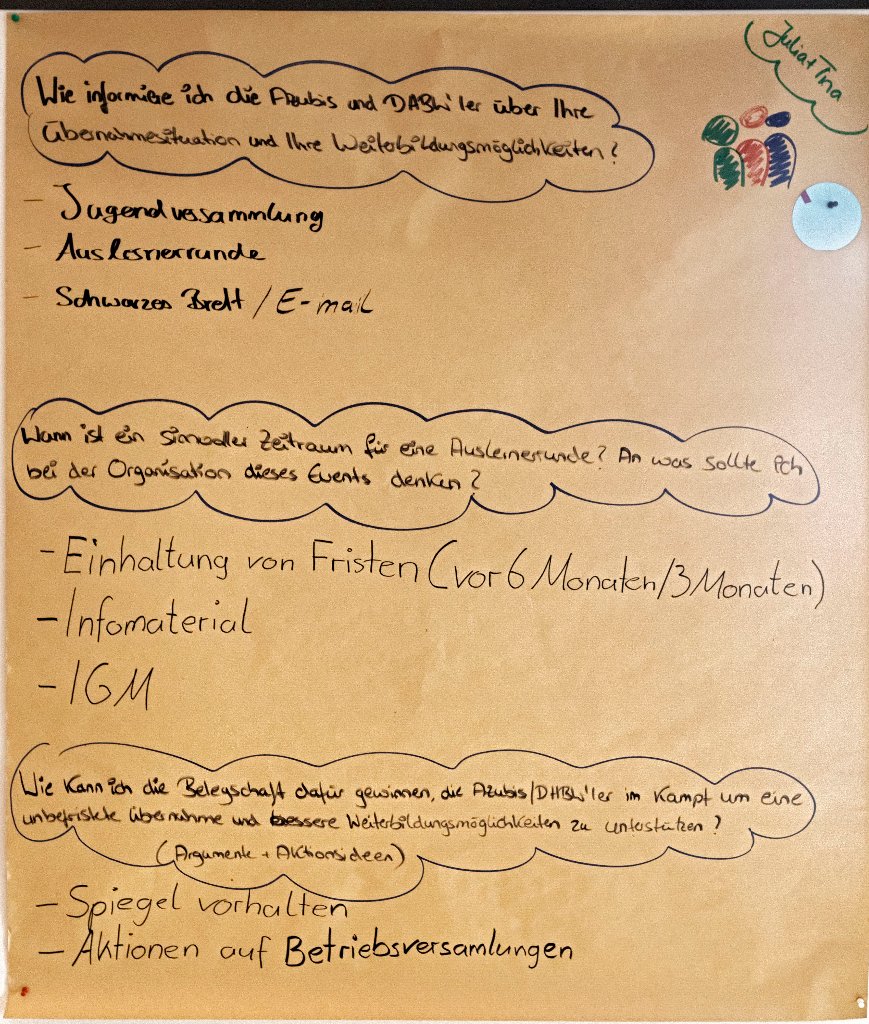 Julia + Tina
Wie informiere ich die Azubis und DABW'ler über Ihre
Übernahmesituation und Ihre Weiterbildungsmöglichkeiten?
- Jugendversammlung
- Auslernerrunde
- Schwarzes Brett / E-mail
Wann ist ein sinnvoller Zeitraum für eine Auslernerrunde? An was sollte ich
bei der Organisation dieses Events denken?
- Einhaltung von Fristen (vor 6 Monaten/3 Monaten)
- Infomaterial
- IGM
Wie kann ich die Belegschaft dafür gewinnen, die Azubis/DHBW'ler im Kampf um eine
unbefristete Übernahme und bessere Weiterbildungsmöglichkeiten zu unterstützen?
(Argumente + Aktionsideen)
- Spiegel vorhalten
- Aktionen auf Betriebsversamlungen